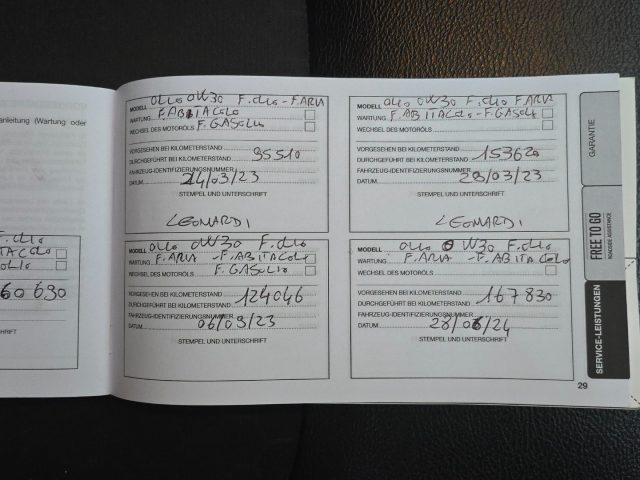 anleitung (Wartung oder
F. OLIO
60 630
RIFT
MODELL OLIO 0W30 F. OLIO - F. ARIA
WARTUNG F. ABITACOLO
WECHSEL DES MOTORÖLS F. GASOLIO
VORGESEHEN BEI KILOMETERSTAND
DURCHGEFÜHRT BEI KILOMETERSTAND 95510
FAHRZEUG-IDENTIFIZIERUNGSNUMMER
DATUM 24/03/23
STEMPEL UND UNTERSCHRIFT
LEONARDI
MODELL OLIO 0W30 F. OLIO
WARTUNG F. ARIA - F. ABITACOLO
WECHSEL DES MOTORÖLS F. GASOLIO
VORGESEHEN BEI KILOMETERSTAND 124046
DURCHGEFÜHRT BEI KILOMETERSTAND
FAHRZEUG-IDENTIFIZIERUNGSNUMMER
DATUM 06/09/23
STEMPEL UND UNTERSCHRIFT
MODELL OLIO 0W30 F. OLIO F ARIA
WARTUNG F. ABITACOLO - F. GASOLIO
WECHSEL DES MOTORÖLS
VORGESEHEN BEI KILOMETERSTAND
DURCHGEFÜHRT BEI KILOMETERSTAND 153620
FAHRZEUG-IDENTIFIZIERUNGSNUMMER
DATUM 29/03/23
STEMPEL UND UNTERSCHRIFT
LEONARDI
MODELL OLIO 0W30 F. OLIO
WARTUNG F. ARIA - F. ABITACOLO
WECHSEL DES MOTORÖLS
VORGESEHEN BEI KILOMETERSTAND
DURCHGEFÜHRT BEI KILOMETERSTAND 167830
FAHRZEUG-IDENTIFIZIERUNGSNUMMER
DATUM 28/06/24
STEMPEL UND UNTERSCHRIFT
29
GARANTIE
FREE TO GO
ROADSIDE ASSISTANCE
SERVICE-LEISTUNGEN